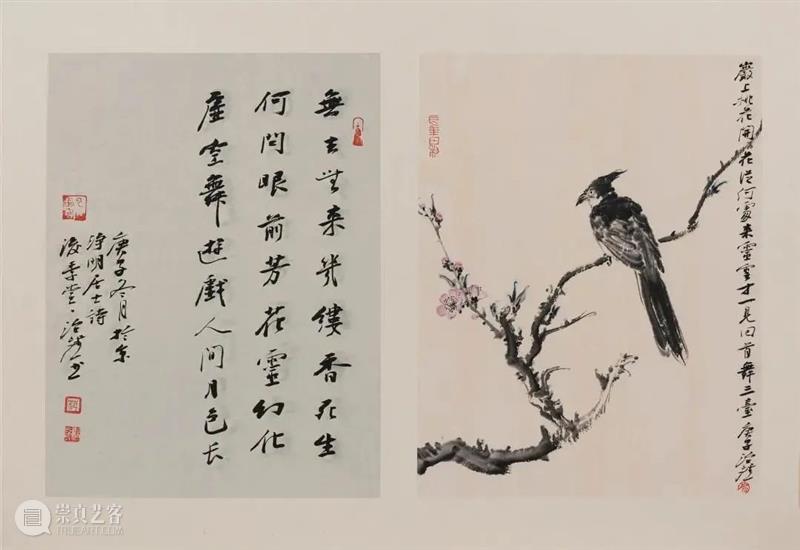 巖上桃花開花從何處来靈雲才一見回首舞三臺庚子
無去無来幾縷香死生
何問眼前芳花靈幻化
虛空舞遊戲人間月色长
庚子冬月於京
淨明居士詩
崇真艺客
TRUEART.COM